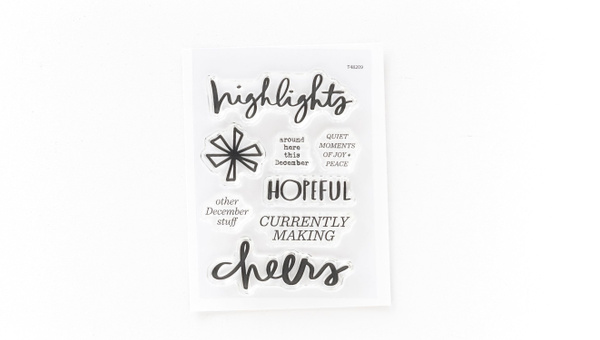 highlights
around
here
this
December
QUIET
MOMENTS
OF JOY +
PEACE
HOPEFUL
other
December
stuff
CURRENTLY
MAKING
cheers